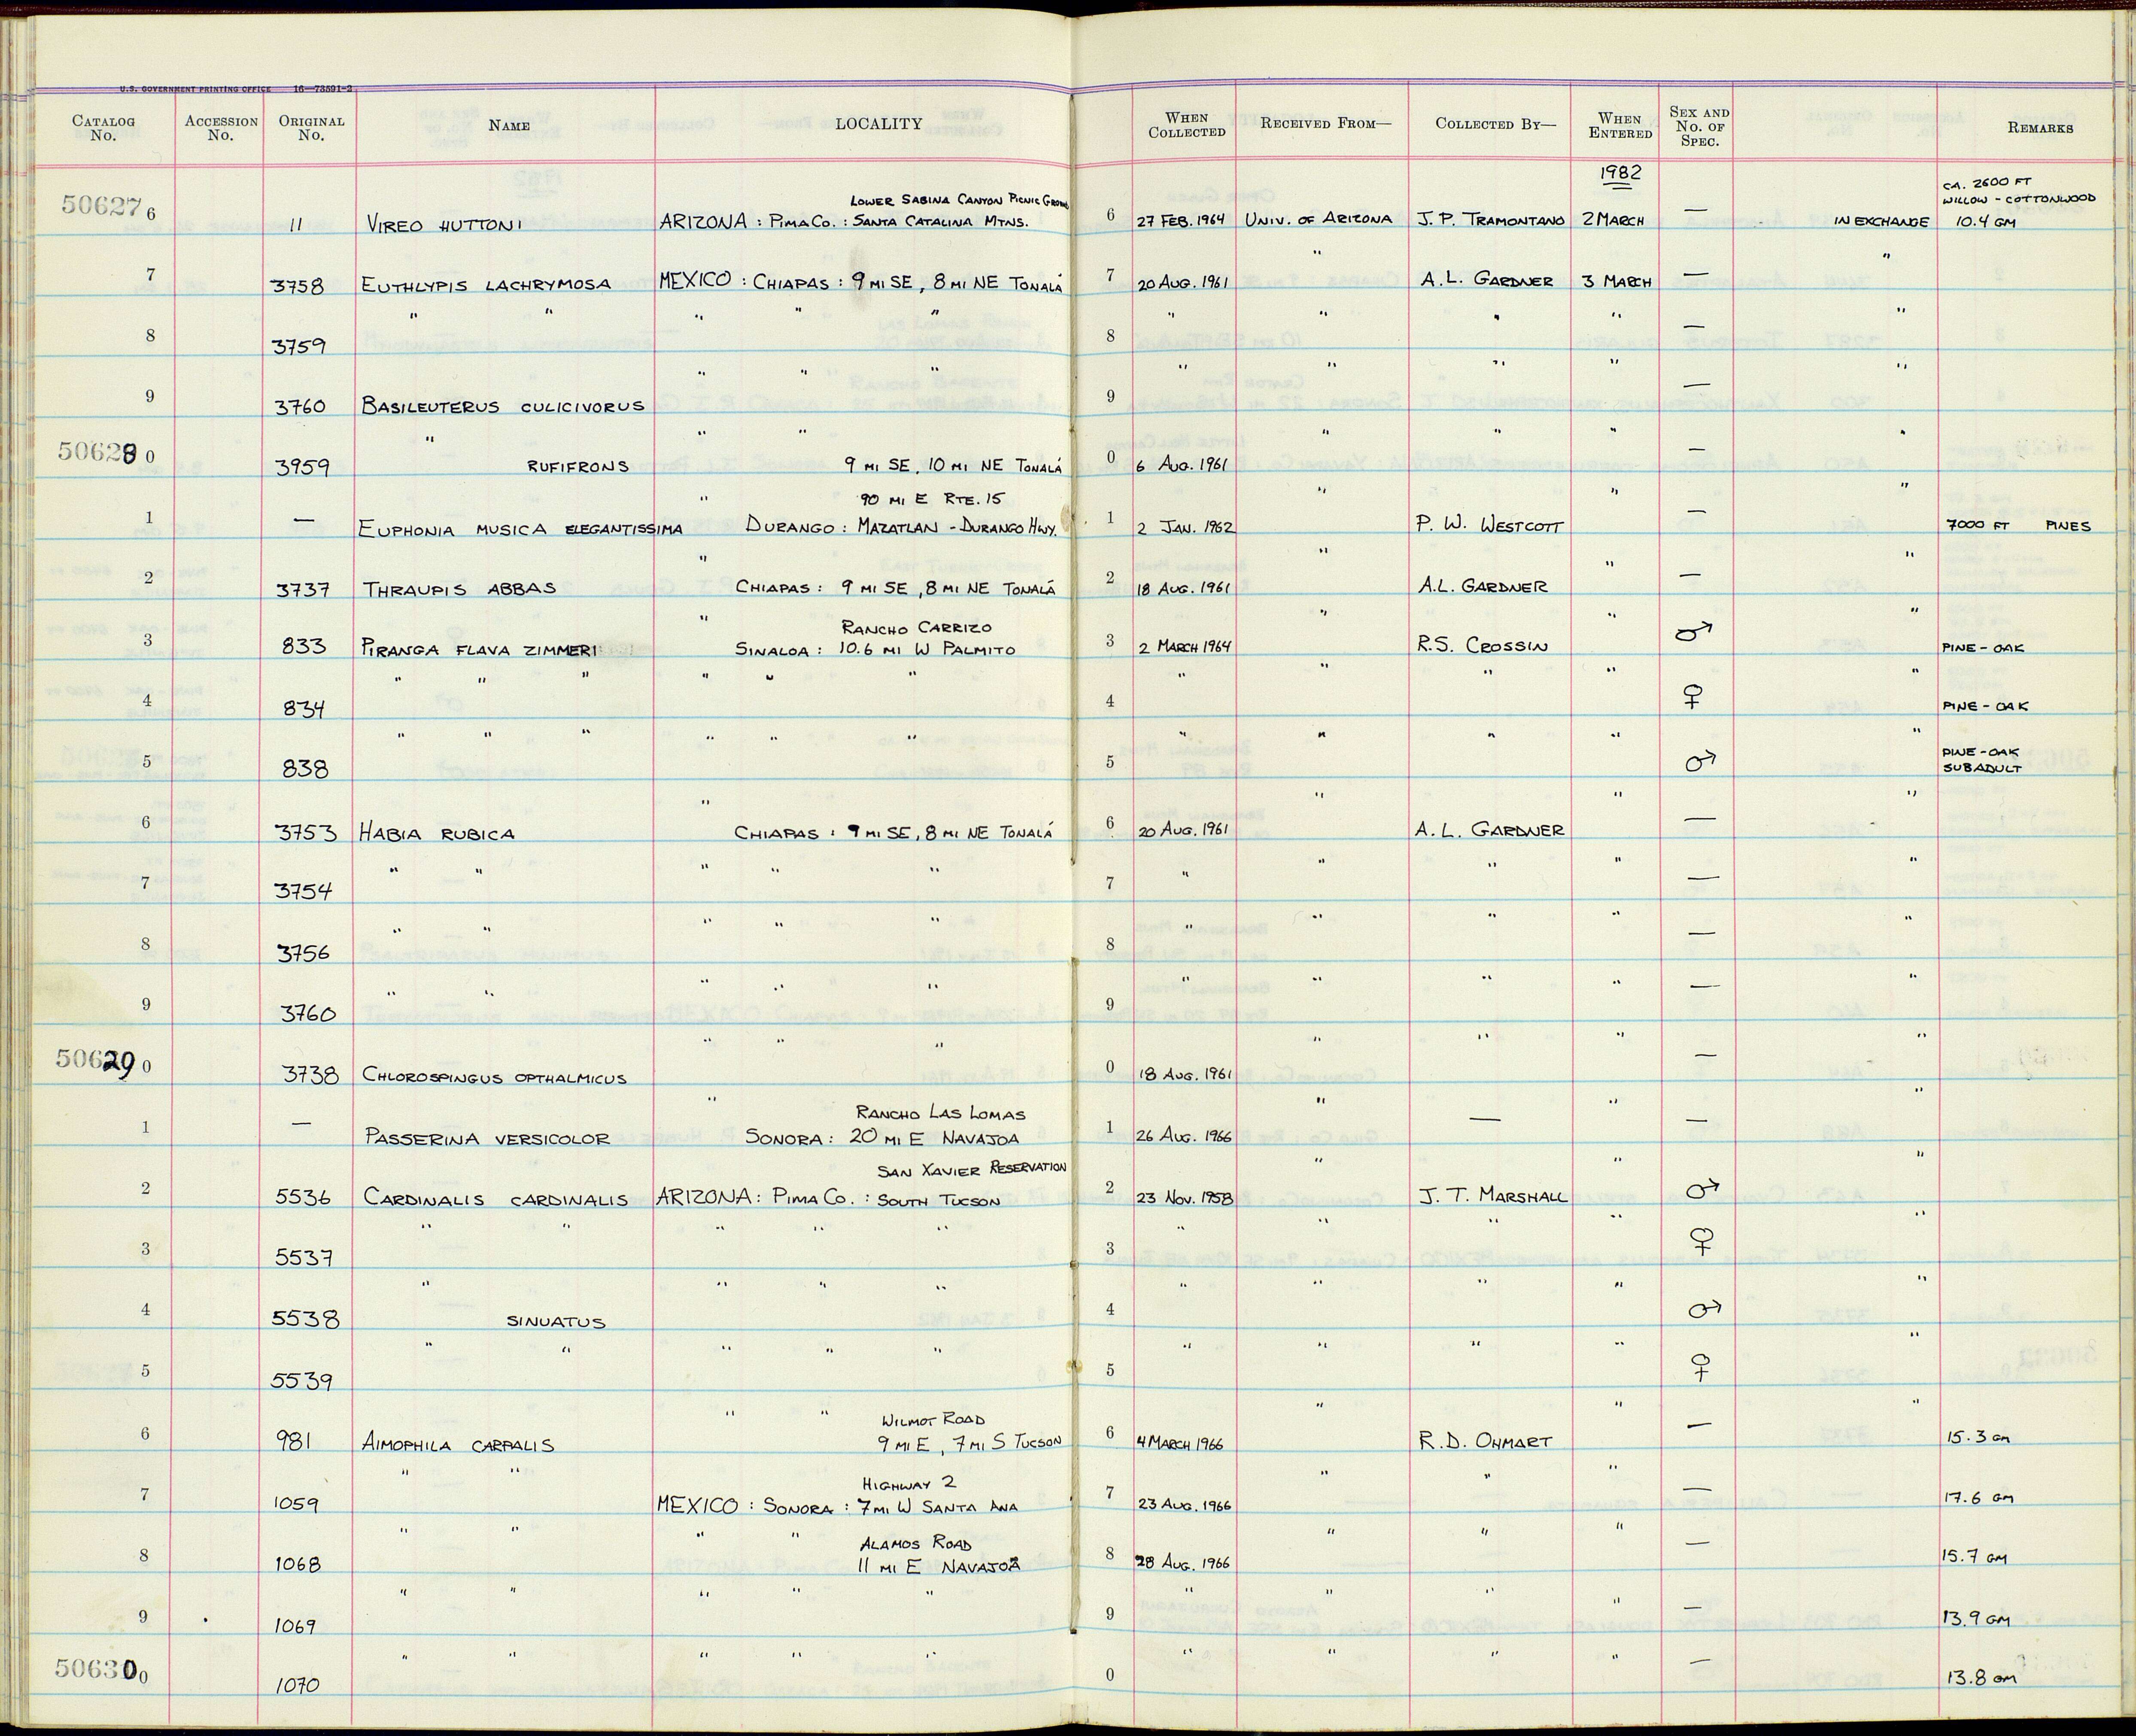 U.S. GOVERNMENT PRINTING OFFICE 16—73591-2
CATALOG No. ACCESSION No. ORIGINAL No. NAME LOCALITY WHEN COLLECTED RECEIVED FROM— COLLECTED BY— WHEN ENTERED SEX AND No. OF SPEC. REMARKS
1982
LOWER SABINA CANYON PICNIC GROUND CA. 2600 FT
WILLOW - COTTONWOOD
506276 11 VIREO HUTTONI ARIZONA : PIMA CO. : SANTA CATALINA MTNS. 6 27 FEB. 1964 UNIV. OF ARIZONA J. P. TRAMONTANO 2 MARCH — IN EXCHANGE 10.4 GM
7 3758 EUTHLYPIS LACHRYMOSA MEXICO : CHIAPAS : 9 MI SE, 8 MI NE TONALÁ 7 20 AUG. 1961 " A.L. GARDNER 3 MARCH — "
8 3759 " " " " " 8 " " " " — "
9 3760 BASILEUTERUS CULICIVORUS " " " 9 " " " " — "
506280 3959 " RUFIFRONS " " 9 MI SE, 10 MI NE TONALÁ 0 6 AUG. 1961 " " " — "
90 MI E RTE. 15
1 — EUPHONIA MUSICA ELEGANTISSIMA " DURANGO : MAZATLAN - DURANGO HWY. 1 2 JAN. 1962 " P. W. WESTCOTT " — " 7000 FT PINES
2 3737 THRAUPIS ABBAS " CHIAPAS : 9 MI SE, 8 MI NE TONALÁ 2 18 AUG. 1961 " A.L. GARDNER " — "
RANCHO CARRIZO
3 833 PIRANGA FLAVA ZIMMERI " SINALOA : 10.6 MI W PALMITO 3 2 MARCH 1964 " R.S. CROSSIN " ♂ " PINE - OAK
4 834 " " " " " " 4 " " " " ♀ " PINE - OAK
5 838 " " " " " " 5 " " " " ♂ " PINE - OAK
SUBADULT
6 3753 HABIA RUBICA " CHIAPAS : 9 MI SE, 8 MI NE TONALÁ 6 20 AUG. 1961 " A. L. GARDNER " — "
7 3754 " " " " " 7 " " " " — "
8 3756 " " " " " 8 " " " " — "
9 3760 " " " " " 9 " " " " — "
506290 3738 CHLOROSPINGUS OPTHALMICUS " " " 0 18 AUG. 1961 " " " — "
RANCHO LAS LOMAS
1 — PASSERINA VERSICOLOR " SONORA : 20 MI E NAVAJOA 1 26 AUG. 1966 " — " — "
SAN XAVIER RESERVATION
2 5536 CARDINALIS CARDINALIS ARIZONA : PIMA CO. : SOUTH TUCSON 2 23 NOV. 1958 " J. T. MARSHALL " ♂ "
3 5537 " " " " " 3 " " " " ♀ "
4 5538 " SINUATUS " " " 4 " " " " ♂ "
5 5539 " " " " " 5 " " " " ♀ "
WILMOT ROAD
6 981 AIMOPHILA CARPALIS " " 9 MI E, 7 MI S TUCSON 6 4 MARCH 1966 " R.D. OHMART " — " 15.3 GM
HIGHWAY 2
7 1059 " " MEXICO : SONORA : 7 MI W SANTA ANA 7 23 AUG. 1966 " " " — 17.6 GM
ALAMOS ROAD
8 1068 " " " " 11 MI E NAVAJOA 8 28 AUG. 1966 " " " — 15.7 GM
9 1069 " " " " " 9 " " " " — 13.9 GM
506300 1070 " " " " " 0 " " " " — 13.8 GM